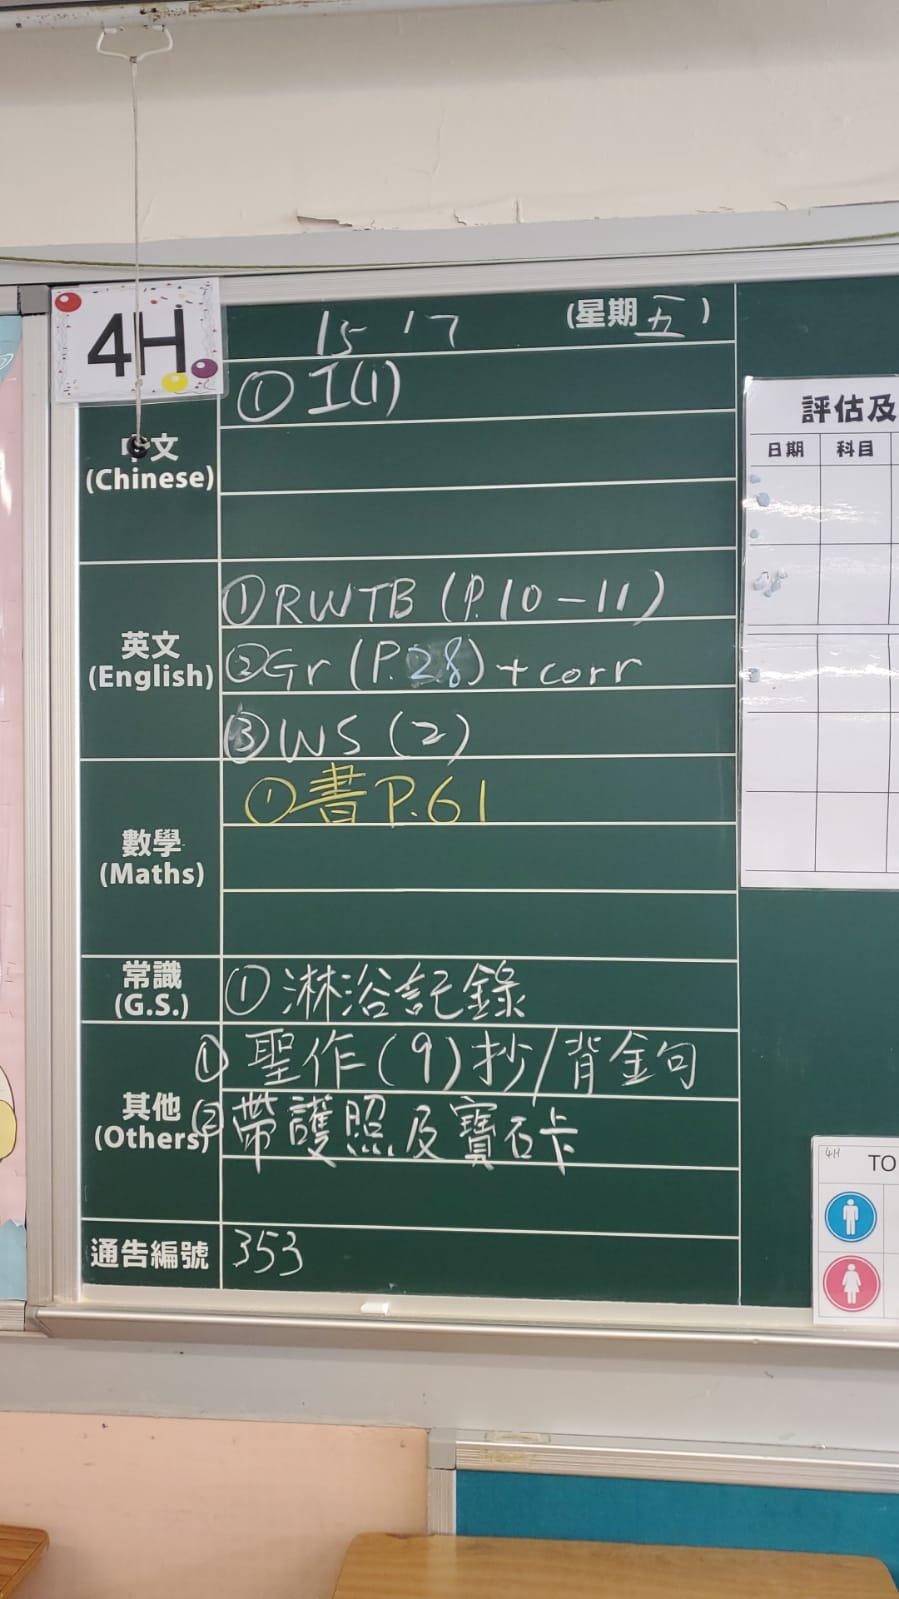 4H
15 '7 (星期五)
中文
(Chinese)
① I(1)
英文
(English)
① RWTB (P.10-11)
② Gr (P.28) + corr
③ WS (2)
數學
(Maths)
① 書 P.61
常識
(G.S.)
① 淋浴記錄
其他
(Others)
① 聖作(9)抄/背金句
② 帶護照及寶石卡
通告編號
353
評估及
日期 科目
4H
TO